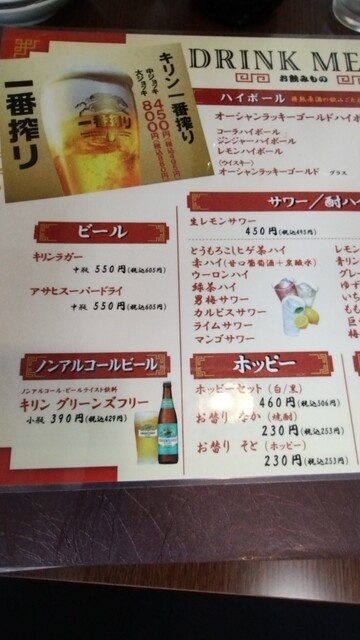 DRINK ME
お飲みもの
一番搾り
キリン一番搾り
中ジョッキ 450円(税込495円)
大ジョッキ 800円(税込880円)
一番搾り
ハイボール
オーシャンラッキーゴールドハイボ
コーラハイボール
ジンジャーハイボール
レモンハイボール
(ウイスキー)
オーシャンラッキーゴールド グラス
ビール
キリンラガー
中瓶 550円(税込605円)
アサヒスーパードライ
中瓶 550円(税込605円)
サワー/酎ハイ
生レモンサワー
450円(税込495円)
とうもろこしヒゲ茶ハイ
赤ハイ(甘口葡萄酒+炭酸水)
ウーロンハイ
緑茶ハイ
男梅サワー
カルピスサワー
ライムサワー
マンゴサワー
レモン
青リン
グレ
ゆず
もも
巨
梅
ノンアルコールビール
ノンアルコール・ビールテイスト飲料
キリン グリーンズフリー
小瓶 390円(税込429円)
ホッピー
ホッピーセット(白/黒)
460円(税込506円)
お替り なか(焼酎)
230円(税込253円)
お替り そと(ホッピー)
230円(税込253円)